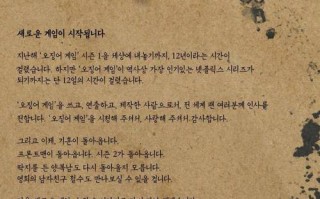 새로운 게임이 시작됩니다.
지난해 '오징어 게임' 시즌 1을 세상에 내놓기까지, 12년이라는 시간이
걸렸습니다. 하지만 '오징어 게임'이 역사상 가장 인기있는 넷플릭스 시리즈가
되기까지는 단 12일의 시간이 걸렸습니다.
'오징어 게임'을 쓰고, 연출하고, 제작한 사람으로서, 전 세계 팬 여러분께 인사를
전합니다. '오징어 게임'을 시청해 주셔서, 사랑해 주셔서 감사합니다.
그리고 이제, 기훈이 돌아옵니다.
프론트맨이 돌아옵니다. 시즌 2가 돌아옵니다.
딱지를 든 양복남도 다시 돌아올지 모릅니다.
영희의 남자친구 철수도 만나보실 수 있을 겁니다.